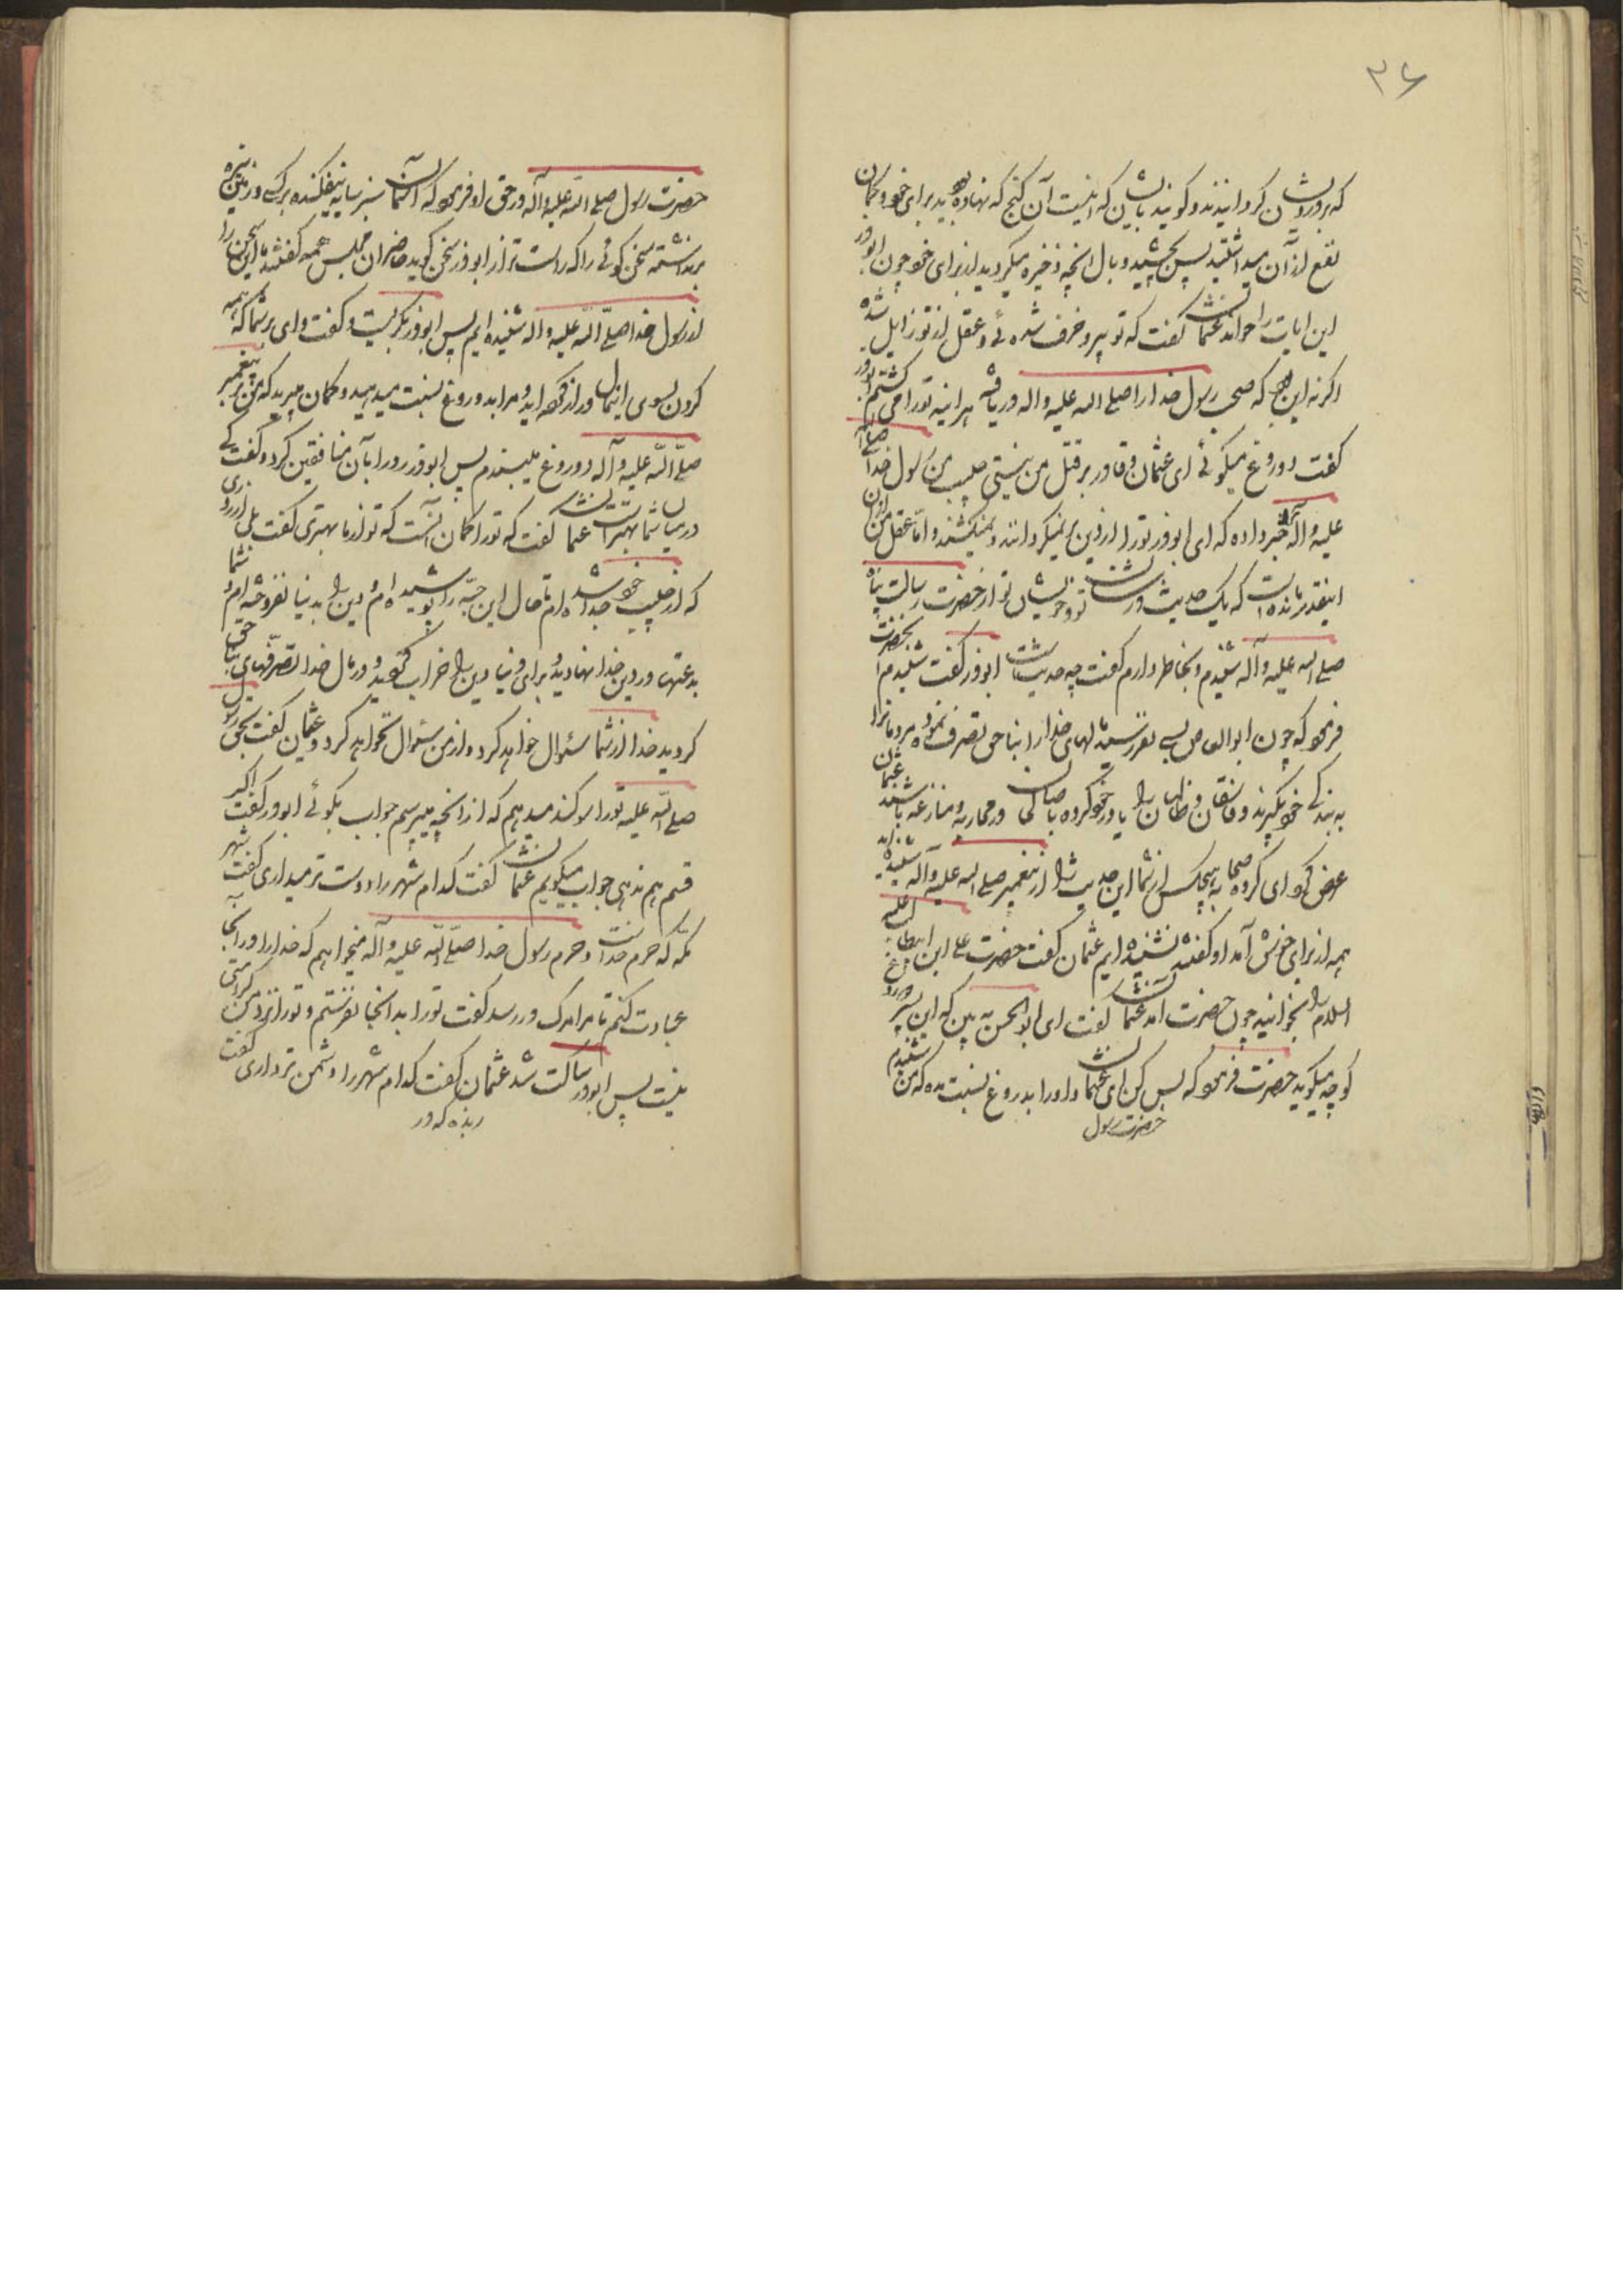 ۳۶
که بر دورایشان گردانیدند و گویند بایشان که اینست آن گنج که نهاده بودید برای خود و گمان
نفع از آن میداشتید پس بچشید وبال آنچه ذخیره میکردید از برای خود چون ابوذر
این ایات را خواند عثمان گفت که تو پیر و خرف شده ئی و عقل از تو زایل شده
اگر نه این بود که صحبت رسول خدا را صلی الله علیه و اله دریافته هر اینه تو را می کشتم ابوذر
گفت دوروغ میگوئی ای عثمان و قادر بر قتل من نیستی حبیب من رسول خدا صلی الله
علیه و اله خبر داده که ای ابوذر تو را از دین بر نمیگردانند و نمیکشند و امّا عقل من از آن
اینقدر مانده است که یک حدیث در شان تو و خویشان تو از حضرت رسالت پناه
صلی الله علیه و آله شنیدم و بخاطر دارم گفت چه حدیث است ابوذر گفت شنیدم از انحضرت
فرمود که چون ال ابوالعاص بسی نفر رسند مالهای خدا را بناحق تصرف نموده مردمانرا
به بندگی خود بگیرند و فاسقان و ظالمان را یاور خود کرده با صالحان در محاربه و منازعه باشند عثمان
عرض کرد ای گروه صحابه هیچکس از شما این حدیث را از پیغمبر صلی الله علیه و آله شنیده اند
همه از برای خوش آمد او گفتند نشنیده ایم عثمان گفت حضرت علی ابن ابیطالب علیه
السلام را بخوانید چون حضرت امد عثمان گفت ای ابوالحسن به بین که این پیر دروغ
گو چه میگوید حضرت فرمود که بس کن ای عثمان و او را بدروغ نسبت مده که من شنیدم
حضرت رسول
حضرت رسول صلی الله علیه و آله در حق او فرمود که آسمان سبز سایه نیفکنده بر کسی و زمین تیره
بر نداشته سخن گوئی را که راست تر از ابوذر سخن گوید حاضران مجلس همه گفتند ما این سخن را
از رسول خدا صلّی الله علیه و اله شنیده ایم پس ابوذر بگریست و گفت وای بر شما که همه
گردن بسوی این مال دراز کرده اید و مرا بدوروغ نسبت میدهید و گمان میبرید که من بر پیغمبر
صلّی الله علیه و آله دوروغ میبندم پس ابوذر رو را بآن منافقین کرد و گفت کی
در میان شما بهتر است عثمان گفت که تو را گمان آنست که تو از ما بهتری گفت بلی از روزی
که از حبیب خود جدا شده ام تا حال این جبّه را پوشیده ام و دین را به دنیا نفروخته ام و شما
بدعتها در دین خدا نهادید و برای دنیا دین را خراب کردید و در مال خدا تصرّفهای بناحق
کردید خدا از شما سئوال خواهد کرد و از من سئوال نخواهد کرد و عثمان گفت بحق رسول
صلی الله علیه تو را سوگند میدهم که از آنچه میپرسم جواب بگوئی ابوذر گفت اگر
قسم هم ندهی جواب میگویم عثمان گفت کدام شهر را دوست تر میداری گفت شهر
مکه که حرم خداست و حرم رسول خدا صلّی الله علیه و آله میخواهم که خدا را در آنجا
عبادت کنم تا مرا مرگ در رسد گفت تو را بدانجا نفرستم و تو را نزد من کرامتی
نیست پس ابوذر ساکت شد عثمان گفت کدام شهر را دشمن تر داری گفت
ربذه که در